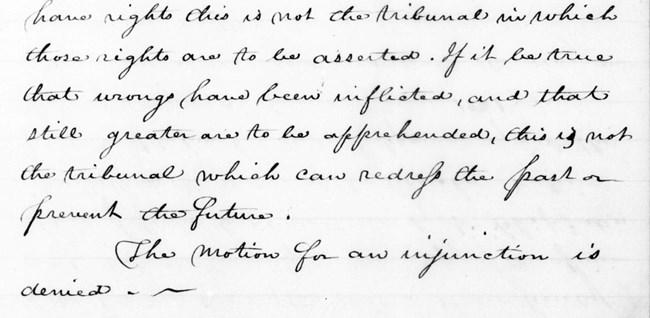 have rights this is not the tribunal in which
those rights are to be asserted. If it be true
that wrongs have been inflicted, and that
still greater are to be apprehended, this is not
the tribunal which can redress the past or
prevent the future.
The motion for an injunction is
denied. —